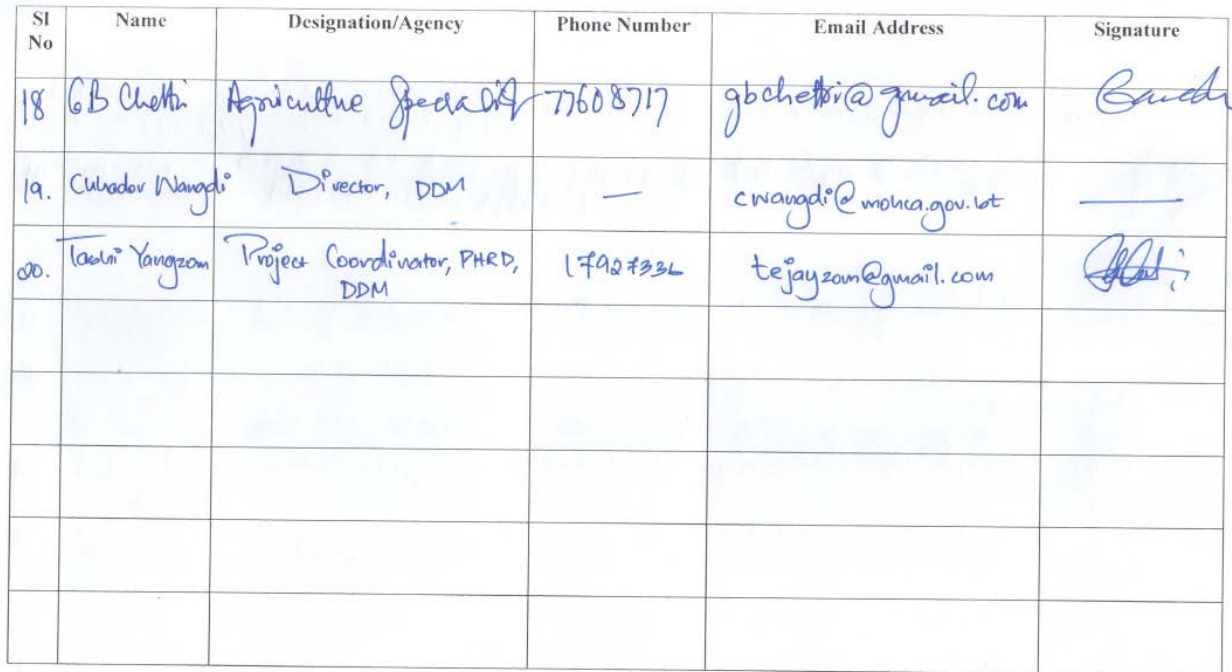 Sl No Name Designation/Agency Phone Number Email Address Signature
18 GB Chettri Agriculture Specialist 77608717 gbchettri@gmail.com
19. Chhador Wangdi Director, DDM — cwangdi@mohca.gov.bt
20. Tashi Yangzom Project Coordinator, PHRD, 17927336 tejayzom@gmail.com
DDM